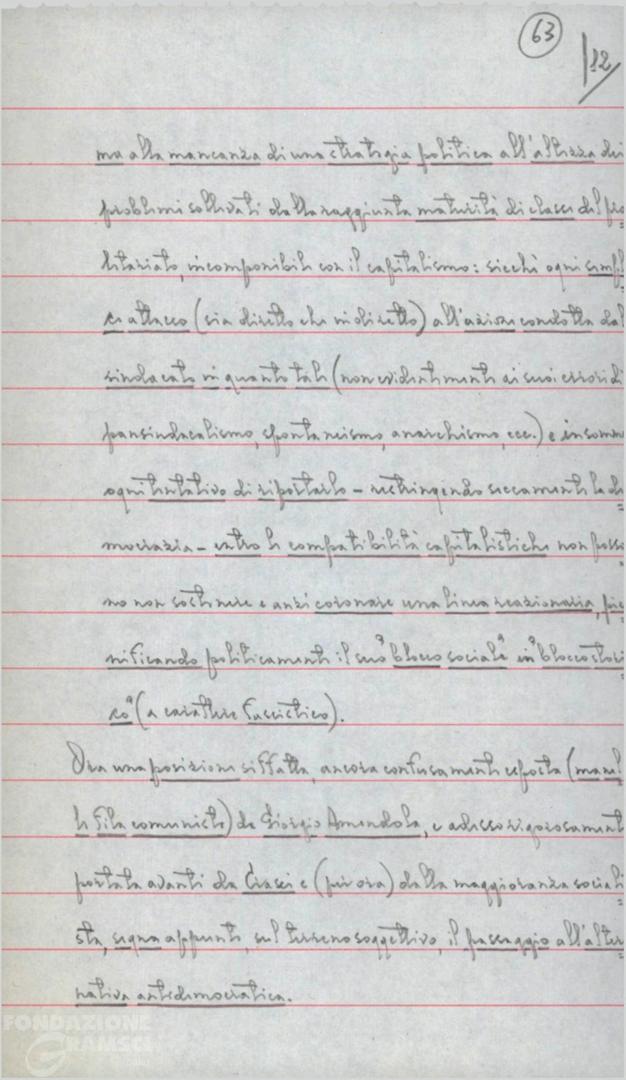 63
/12
ma alla mancanza di una strategia politica all'altezza dei
problemi sollevati dalla raggiunta maturità di classe del pro=
letariato, incomponibile con il capitalismo: sicché ogni sempl
ce attacco (sia diretto che indiretto) all'azione condotta dal
sindacato in quanto tale (non evidentemente ai suoi errori di
pansindacalismo, spontaneismo, anarchismo, ecc.) e insomma
ogni tentativo di riportarlo – restringendo seccamente la de=
mocrazia – entro le compatibilità capitalistiche non posso=
no non sostenere e anzi coronare una linea reazionaria,
nificando politicamente il suo "blocco sociale" in "blocco stori
co" (a carattere fascistico).
Ora una posizione siffatta, ancora confusamente esposta (
le fila comuniste) da Giorgio Amendola, e adesso rigorosament
portata avanti da Craxi e (per ora) dalla maggioranza sociali=
sta, segna appunto, sul terreno soggettivo, il passaggio all'alter=
nativa antidemocratica.
FONDAZIONE
GRAMSCI